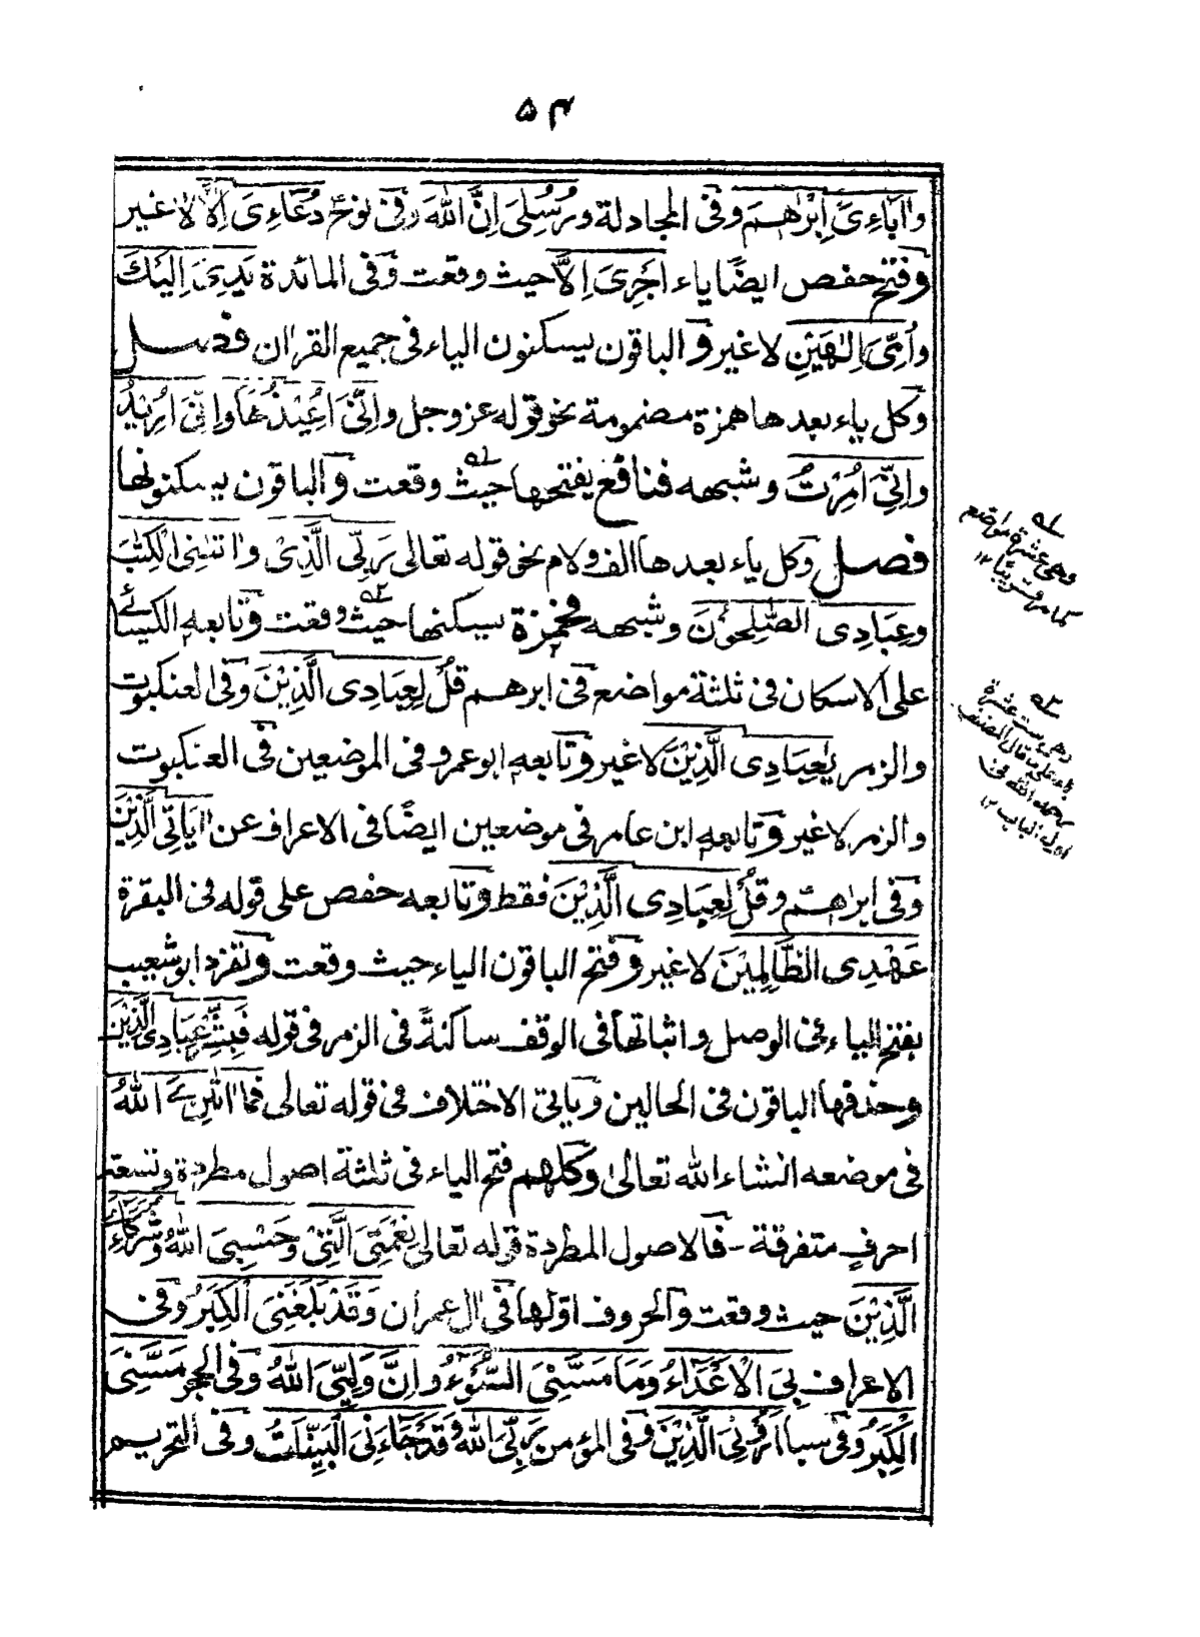 ۵۴
وَاٰبَاءِیَ اِبْرٰهِیْمَ وفی المجادلة ورُسُلِیَ اِنَّ اللهَ وفی نوحٍ دُعَاءِیَ اِلَّا لاغیر
وفتح حفص ایضًا یاء اَجْرِیَ اِلَّا حیث وقعت وفی المائدة یَدِیَ اِلَیْكَ
واُمِّیَ اِلٰهَیْنِ لاغیر والباقون یسکنون الیاء فی جمیع القراٰن فصل
وکل یاء بعدها همزة مضمومة نحو قوله عز وجل وَاِنِّیَ اُعِیْذُهَا وَاِنِّیَ اُرِیْدُ
واِنِّیَ اُمِرْتُ وشبهه فنافع یفتحها حیث وقعت والباقون یسکنونها
فصل وکل یاء بعدها الف ولام نحو قوله تعالی رَبِّیَ الَّذِیْ واٰتٰنِیَ الْکِتٰبَ
وعِبَادِیَ الصّٰلِحُوْنَ وشبهه فحمزة یسکنها حیث وقعت وتابعه الکسائی
علی الاسکان فی ثلثة مواضع فی ابرهیم قُلْ لِعِبَادِیَ الَّذِیْنَ وفی العنکبوت
والزمر یٰعِبَادِیَ الَّذِیْنَ لاغیر وتابعه ابوعمرو فی الموضعین فی العنکبوت
والزمر لاغیر وتابعه ابن عامر فی موضعین ایضًا فی الاعراف عن اٰیَاتِیَ الَّذِیْنَ
وفی ابراهیم وقُلْ لِعِبَادِیَ الَّذِیْنَ فقط وتابعه حفص علی قوله فی البقرة
عَهْدِی الظّٰلِمِیْنَ لاغیر وفتح الباقون الیاء حیث وقعت وتفرد ابوشعیب
بفتح الیاء فی الوصل واثباتها فی الوقف ساکنةً فی الزمر فی قوله فَبَشِّرْ عِبَادِیَ الَّذِیْنَ
وحذفها الباقون فی الحالین ویاتی الاختلاف فی قوله تعالی فَمَا اٰتٰنِیَ اللهُ
فی موضعه انشاء الله تعالیٰ وکلهم فتح الیاء فی ثلثة اصول مطردة وتسعة
احرفٍ متفرقة - فالاصول المطردة قوله تعالی نِعْمَتِیَ الَّتِیْ وحَسْبِیَ اللهُ وشُرَکَاءِیَ
الَّذِیْنَ حیث وقعت والحروف اوّلها فی اٰل عمران وَقَدْ بَلَغَنِیَ الْکِبَرُ وفی
الاعراف بِیَ الْاَعْدَاءَ وَمَا مَسَّنِیَ السُّوْءُ واِنَّ وَلِیِّیَ اللهُ وفی الحجر مَسَّنِیَ
الْکِبَرُ وفی سبا اَرُوْنِیَ الَّذِیْنَ وفی المؤمن رَبِّیَ اللهُ وقَدْ جَاءَنِیَ الْبَیِّنَاتُ وفی التحریم
له
وهی عشرة مواضع
کما مر قریبًا ۱۲
وهی ست عشرة
علی ما قال المصنف
رحمه الله فی
اول الباب ۱۲